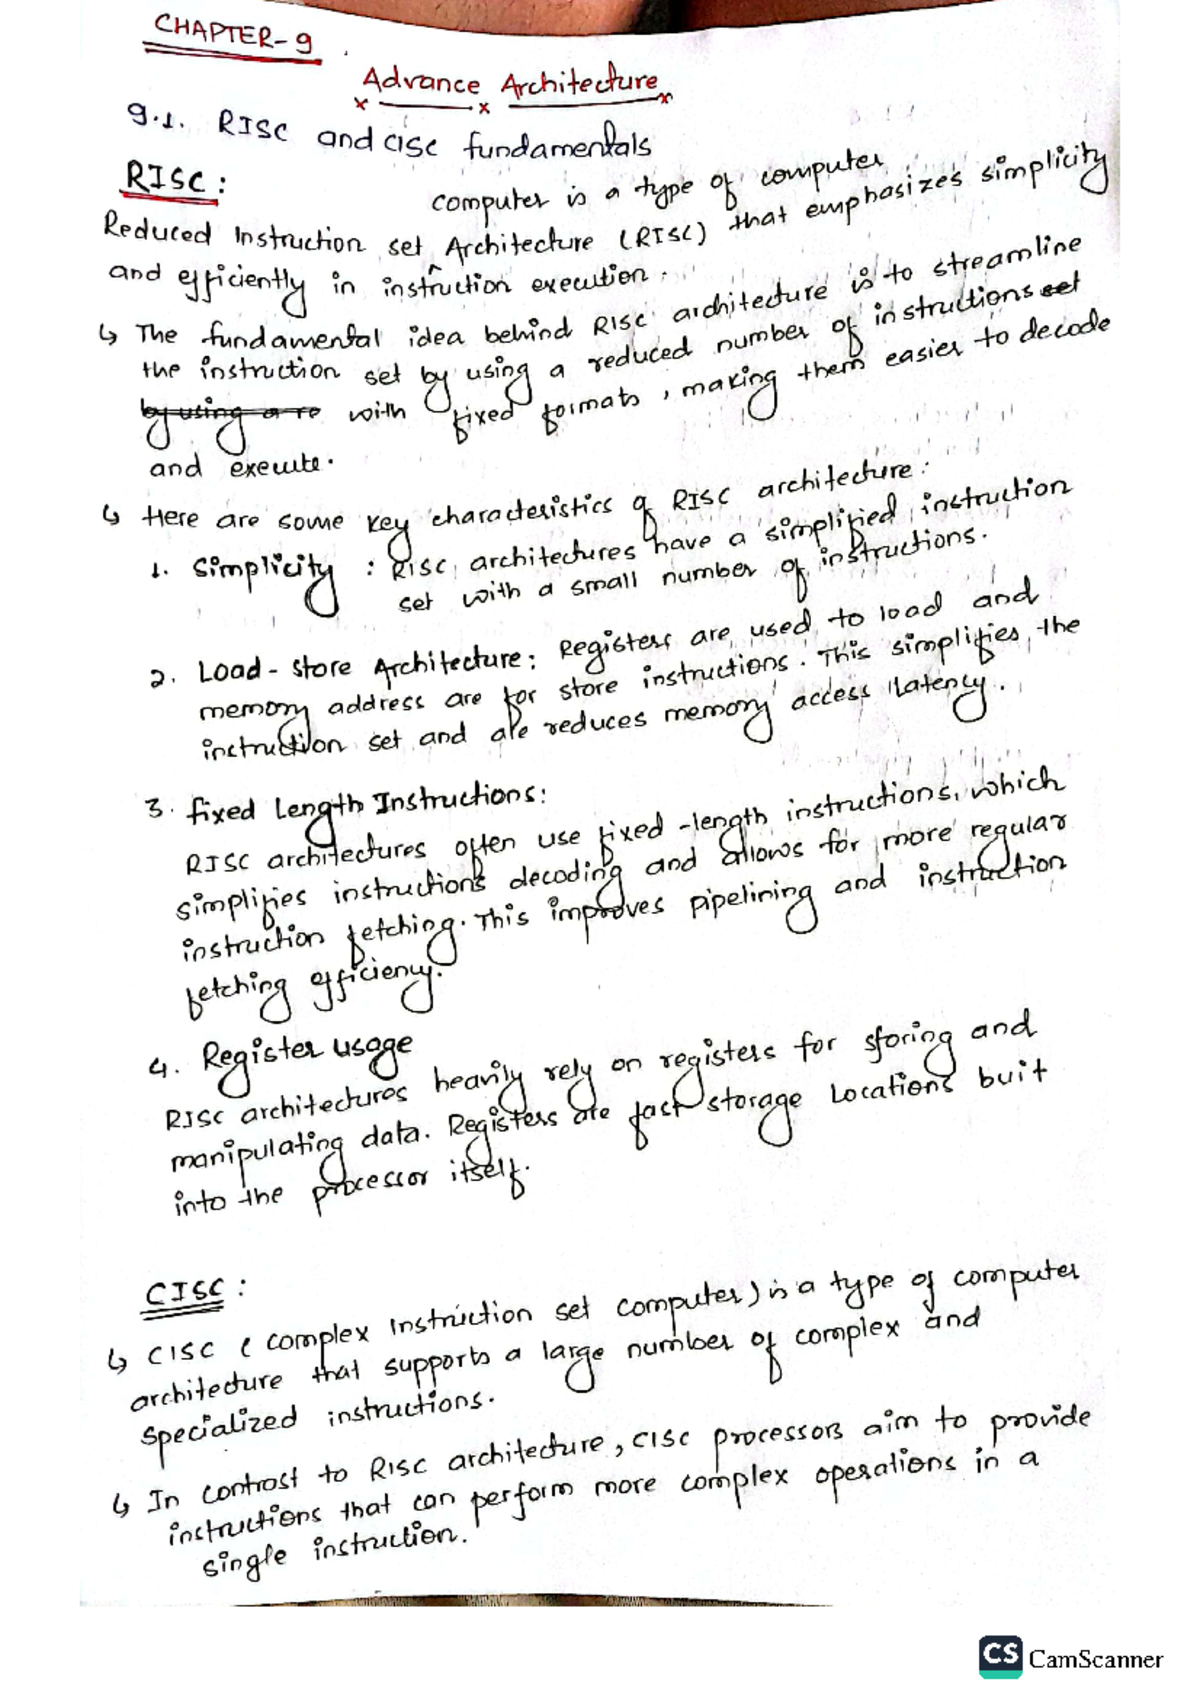 CHAPTER-9
Advance Architecture
9.1. RISC and cisc fundamentals
RISC:
computer is a type of computer
Reduced Instruction set Architecture (RISC) that emphasizes simplicity
and efficiently in instruction execution.
↳ The fundamental idea behind RISC architecture is to streamline
the instruction set by using a reduced number of instructions set
by using a re with fixed formats, making them easier to decode
and execute.
↳ Here are some key characteristics of RISC architecture:
1. Simplicity : RISC architectures have a simplified instruction
set with a small number of instructions.
2. Load-store Architecture: Registers are used to load and
memory address are for store instructions. This simplifies the
instruction set and ale reduces memory access latency.
3. fixed Length Instructions:
RISC architectures often use fixed-length instructions, which
simplifies instructions decoding and allows for more regular
instruction fetching. This improves pipelining and instruction
fetching efficiency.
4. Register usage
RISC architectures heavily rely on registers for storing and
manipulating data. Registers are fast storage Locations buit
into the processor itself.
CISC:
↳ CISC (complex Instruction set computer) is a type of computer
architecture that supports a large number of complex and
specialized instructions.
↳ In controst to RISC architecture, CISC processors aim to provide
instructions that can perform more complex operations in a
single instruction.
CS CamScanner